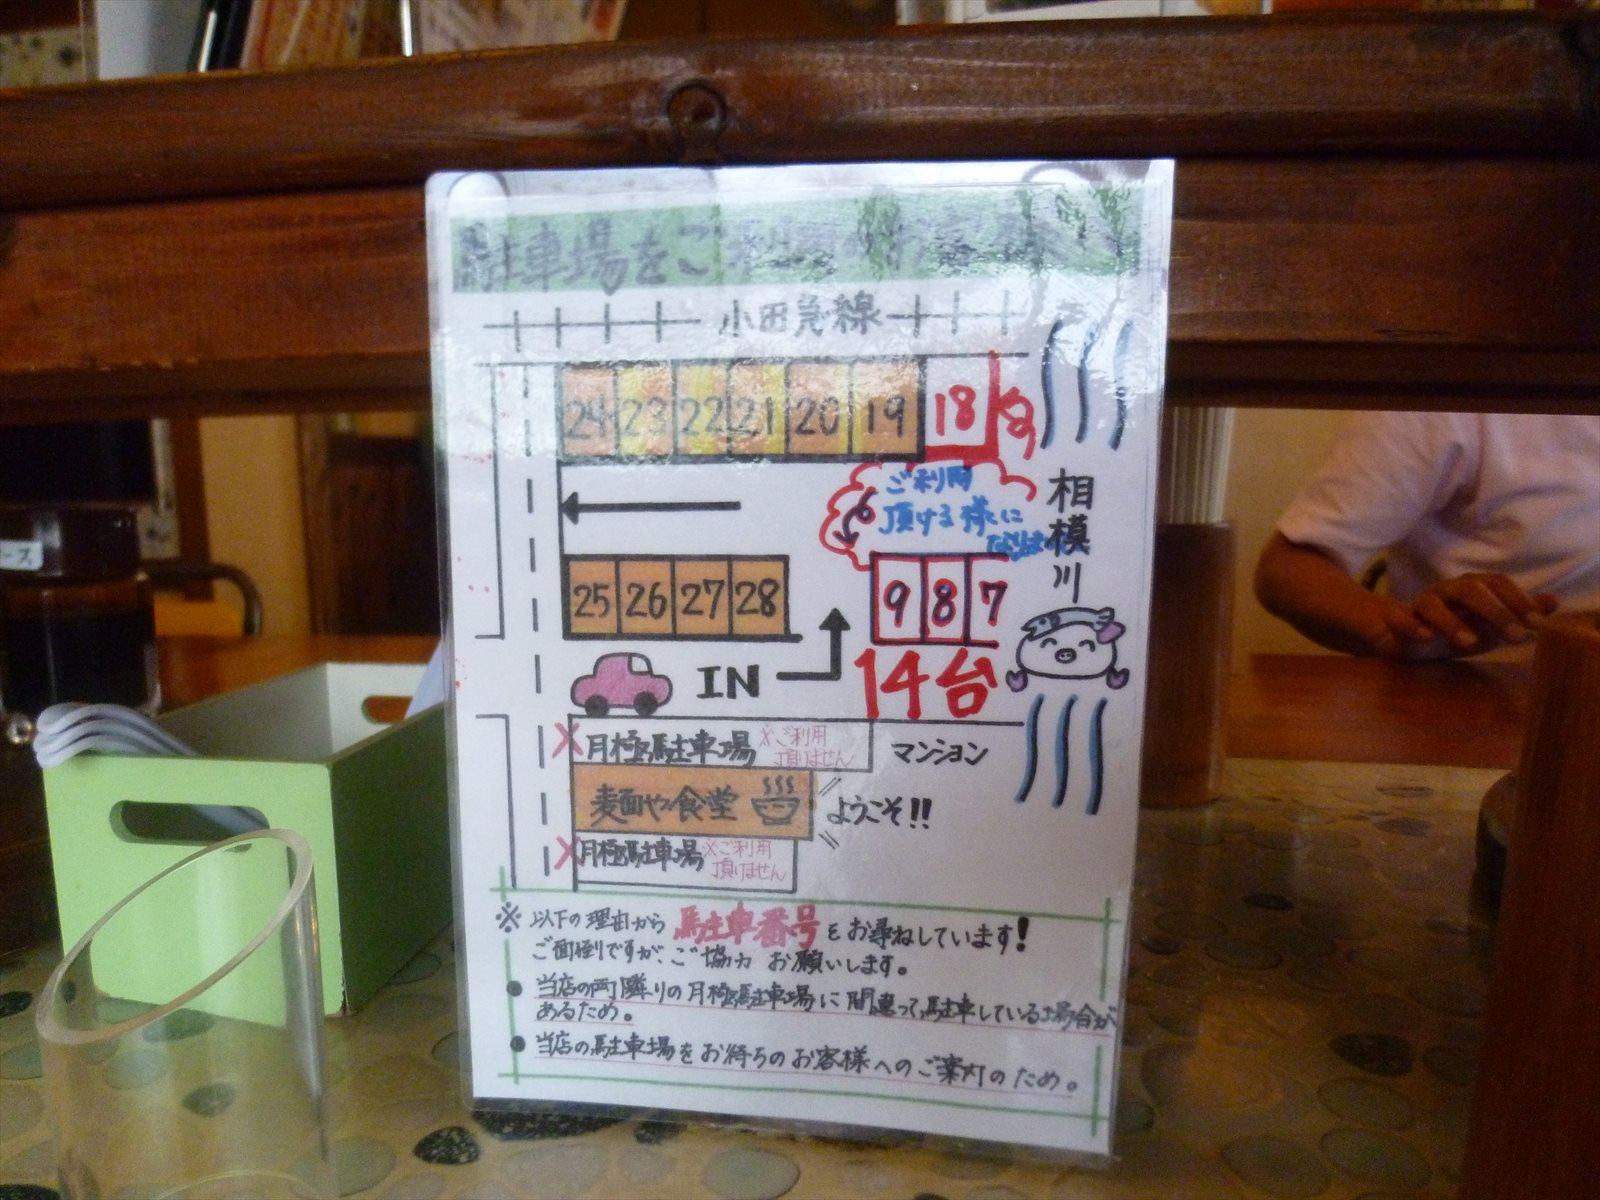 駐車場をご利用のお客様へ
小田急線
24 23 22 21 20 19 18
ご利用
頂ける様に
なりました
相模川
25 26 27 28
9 8 7
IN
14台
月極駐車場
※ご利用
頂けません
マンション
麺や食堂
ようこそ!!
月極駐車場
※ご利用
頂けません
※以下の理由から駐車番号をお尋ねしています!
ご面倒ですが、ご協力お願いします。
●当店の両隣りの月極駐車場に間違って駐車している場合が
あるため。
●当店の駐車場をお待ちのお客様へのご案内のため。